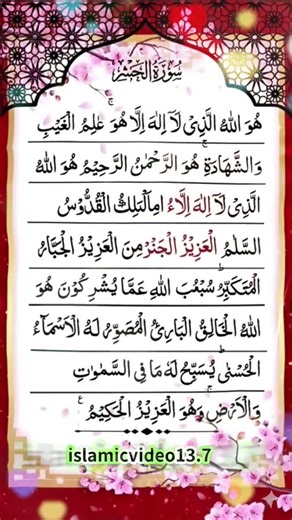 هُوَ اللهُ الَّذِیْ لَاۤ اِلٰهَ اِلَّا هُوَ عٰلِمُ الْغَیْبِ
وَالشَّهَادَةِ هُوَ الرَّحْمٰنُ الرَّحِیْمُ هُوَ اللهُ
الَّذِیْ لَاۤ اِلٰهَ اِلَّاءُ اِمِالْتِلِكُ الْقُدُّوْسُ
السَّلٰمُ الْعَزِیْزُ الْجَنْرُمِنَ الْعَزِیْزُ الْجَبَّارُ
الْمُتَكَبِّرُ سُبْعُبُ اللهِ عَمَّا یُشْرِكُوْنَ هُوَ
اللهُ الْخَالِقُ الْبَارِئُ الْمُصَوِّرُ لَهُ الْاَسْمَآءُ
الْحُسْنٰی یُسَبِّحُ لَهٗ مَا فِی السَّمٰوٰتِ
وَالْاَرْضِ وَهُوَ الْعَزِیْزُ الْحَكِیْمُ
islamicvideo13.7